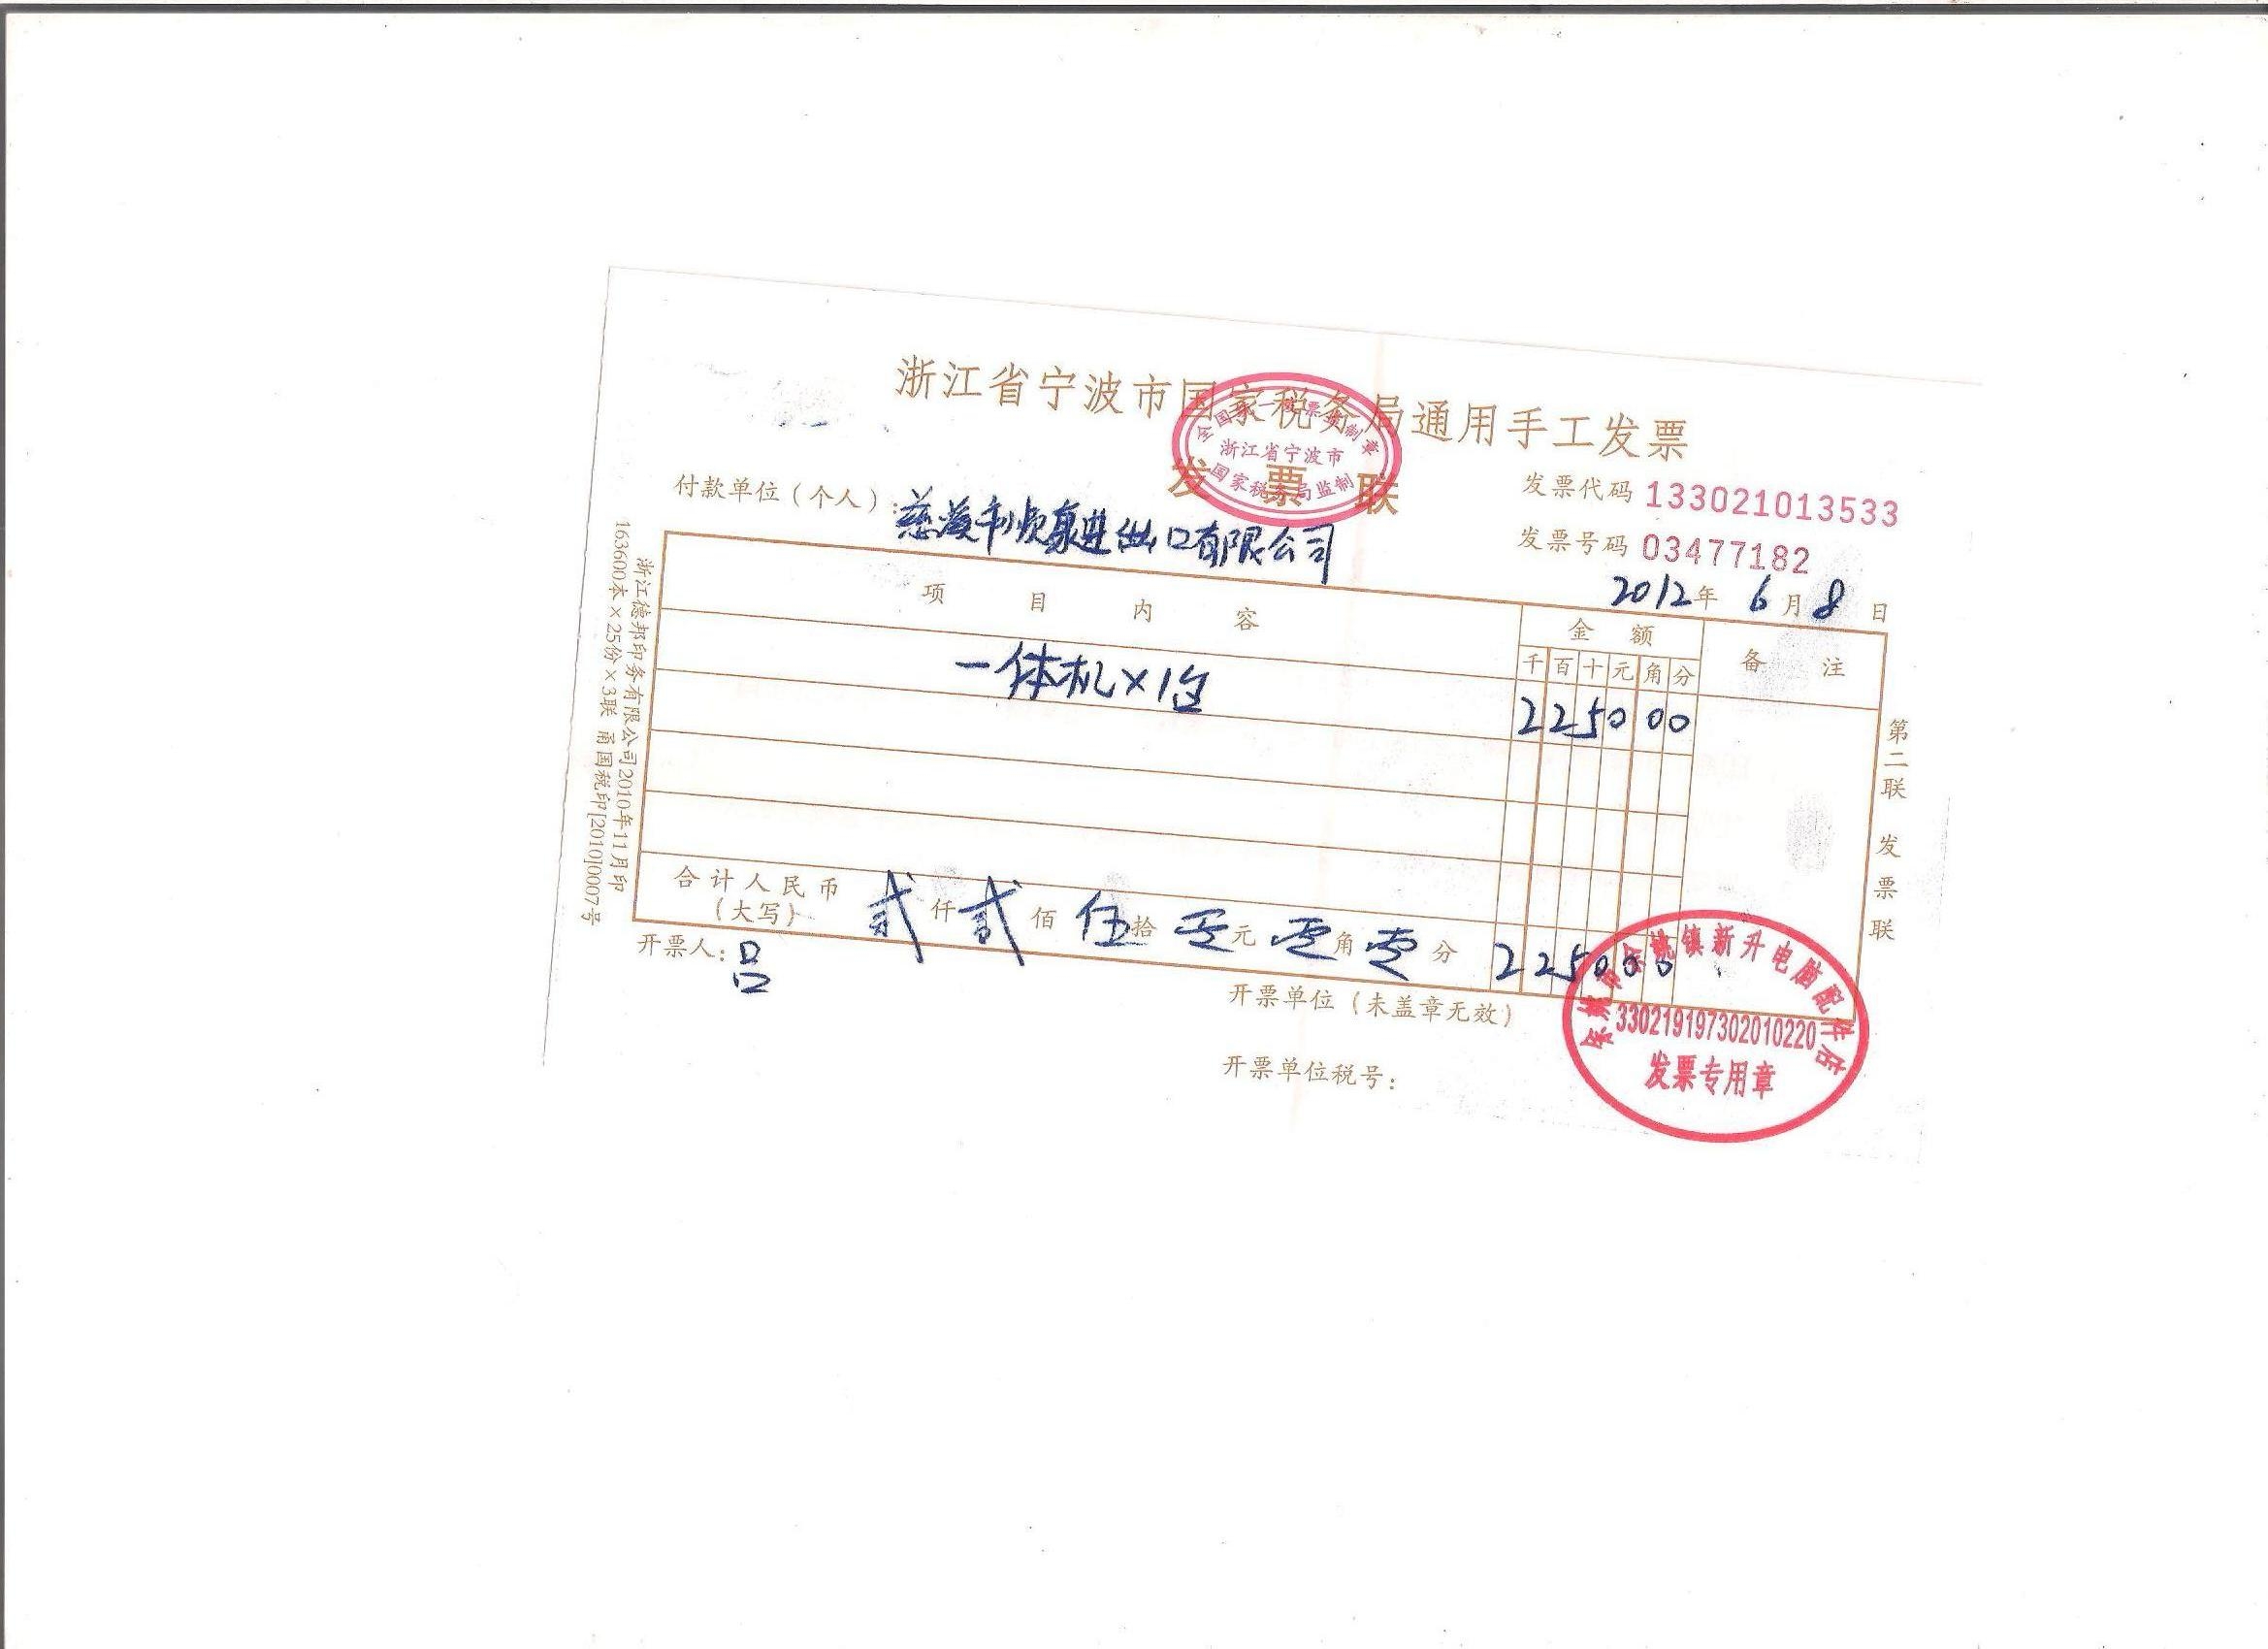 浙江省宁波市国家税务局通用手工发票
全国统一发票监制章
浙江省宁波市
国家税务局监制
发票联
发票代码 133021013533
发票号码 03477182
付款单位(个人): 慈溪利顺泉进出口有限公司
2012年 6月 8日
项目内容
金额
备注
千 百 十 元 角 分
一体机×1台
2 2 5 0 0 0
合计人民币
(大写)
贰仟贰佰伍拾零元零角零分 2 2 5 0 0 0
开票人: 吕
开票单位(未盖章无效)
开票单位税号:
镇新升电脑配件店
330219197302010220
发票专用章
第二联 发票联
浙江德邦印务有限公司2010年11月印
163600本×25份×3联 甬国税印[2010]0007号